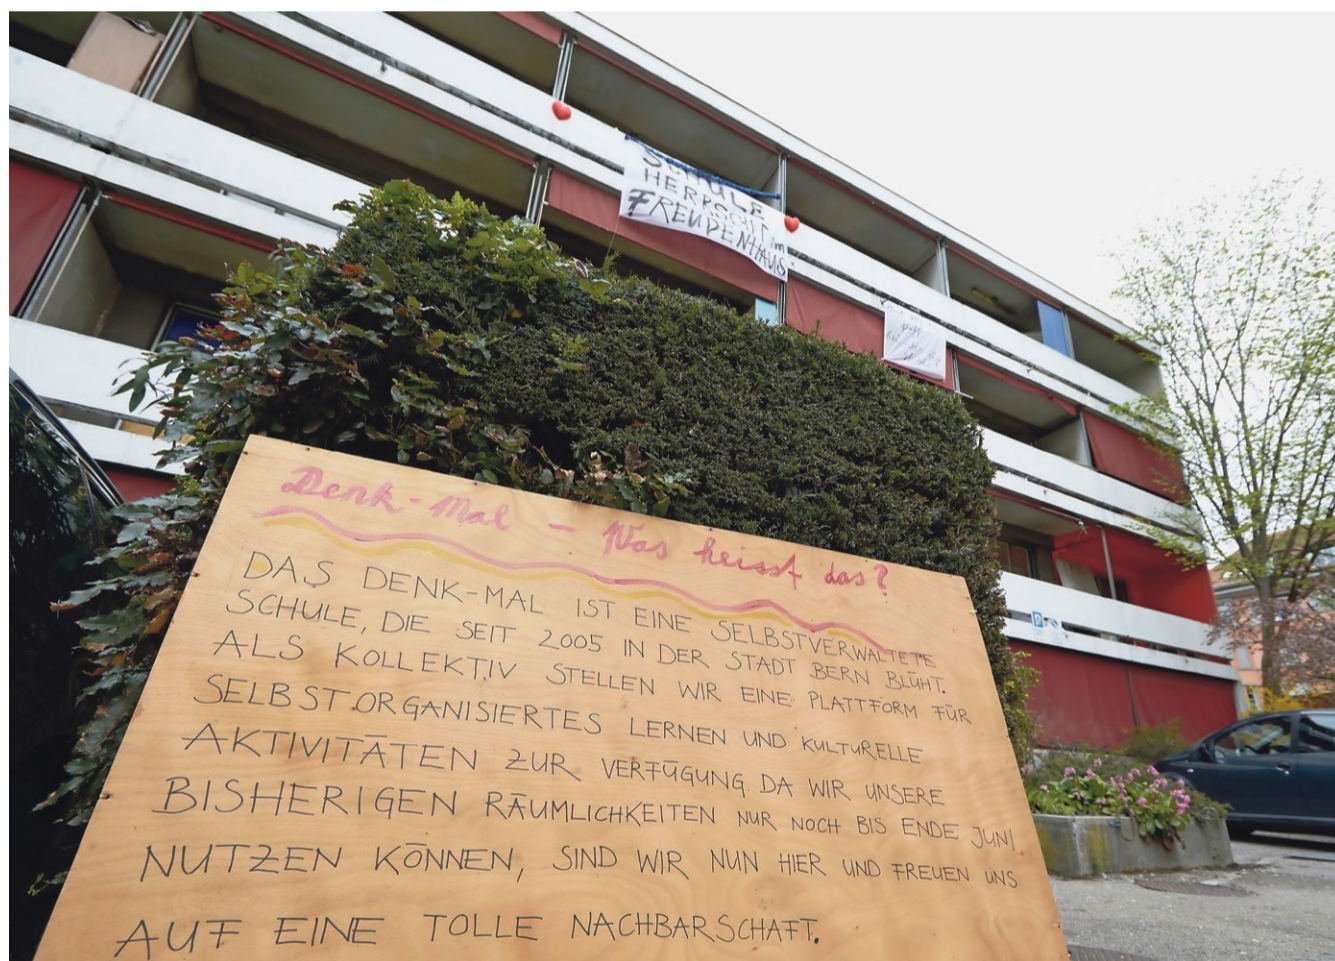 SCHULE
HERRSCHT im
FREUDENHAUS
Denk-Mal – Was heisst das?
DAS DENK-MAL IST EINE SELBSTVERWALTETE
SCHULE, DIE SEIT 2005 IN DER STADT BERN BLÜHT.
ALS KOLLEKTIV STELLEN WIR EINE PLATTFORM FÜR
SELBSTORGANISIERTES LERNEN UND KULTURELLE
AKTIVITÄTEN ZUR VERFÜGUNG. DA WIR UNSERE
BISHERIGEN RÄUMLICHKEITEN NUR NOCH BIS ENDE JUNI
NUTZEN KÖNNEN, SIND WIR NUN HIER UND FREUEN UNS
AUF EINE TOLLE NACHBARSCHAFT.
P